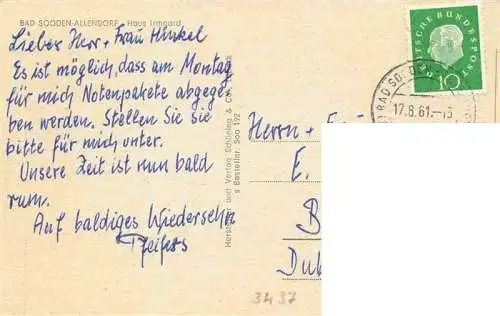 BAD SOODEN-ALLENDORF Haus Irmgard
Lieber Herr + Frau Hinkel
Es ist möglich, dass am Montag
für mich Notenpakete abgege-
ben werden. Stellen Sie sie
bitte für mich unter.
Unsere Zeit ist nun bald
rum.
Auf baldiges Wiedersehn
Pfeifers
Hersteller und Verlag Schöning & Co
s Bestellnr. Soo 192
DEUTSCHE BUNDESPOST
10
BAD SO
17.8.61.-18
Herrn +
E.
B
Du
3437